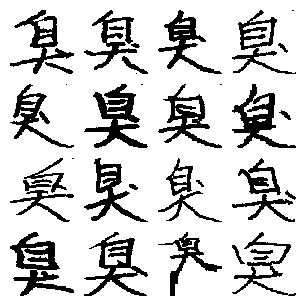 臭臭臭臭
臭臭臭臭
臭臭臭臭
臭臭臭臭